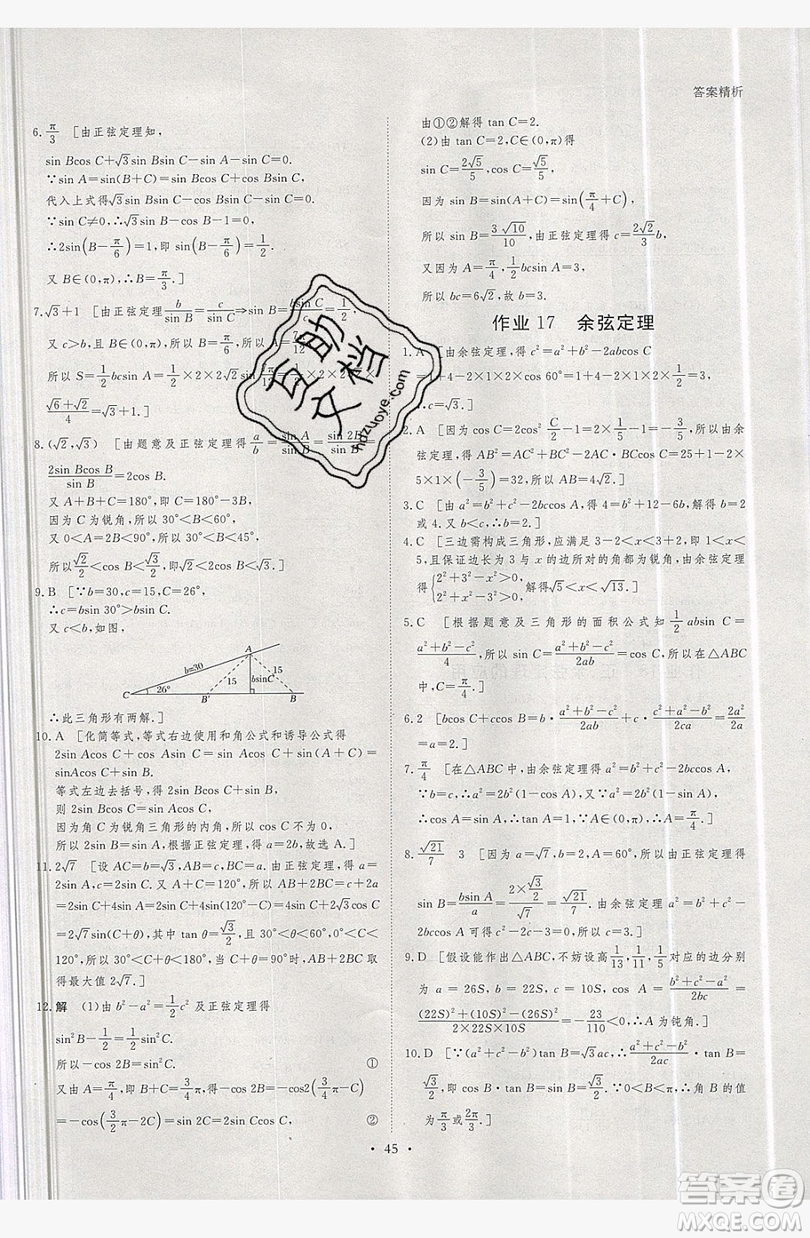 答案精析
6. π/3 [由正弦定理知,
sin Bcos C+√3sin Bsin C-sin A-sin C=0.
∵sin A=sin(B+C)=sin Bcos C+cos Bsin C
代入上式得√3sin Bsin C-cos Bsin C-sin C=0.
∵sin C≠0,∴√3sin B-cos B-1=0.
∴2sin(B-π/6)=1,即 sin(B-π/6)=1/2.
又∵B∈(0,π),∴B=π/3.]
7. √3+1 [由正弦定理 b/sin B=c/sin C ⇒ sin B=bsin C/c=1/2,
又 c>b,且 B∈(0,π),所以 B=π/6,所以 A=7π/12,
所以 S=1/2 bcsin A=1/2×2×2√2sin 7π/12=1/2×2×2√2×
(√6+√2)/4=√3+1.]
8. (√2,√3) [由题意及正弦定理得 a/b=sin A/sin B=sin 2B/sin B=
2sin Bcos B/sin B=2cos B.
又 A+B+C=180°,即 C=180°-3B.
因为 C 为锐角,所以 30°<B<60°,
又 0<A=2B<90°,所以 30°<B<45°,
所以 √2/2<cos B<√3/2,所以√2<2cos B<√3.]
9. B [∵b=30,c=15,C=26°,
∴c=bsin 30°>bsin C.
又 c<b,如图.
b=30 A 15 15 bsinC C 26° B′ B
∴此三角形有两解.]
10. A [化简等式,等式右边使用和角公式和诱导公式得
2sin Acos C+cos Asin C=sin(A+C)+cos Asin C=
sinAcos C+sin B.
等式左边去括号,得 sin B+2sin Bcos C,
则 2sin Bcos C=sin Acos C,
因为角 C 为锐角三角形的内角,所以 cos C 不为 0.
所以 2sin B=sin A,根据正弦定理,得 2b=a,故选 A.]
11. 2√7 [设 AC=b=√3,AB=c,BC=a. 由正弦定理,得 a=
2sin A,c=2sin C,A+C=120°,所以 AB+2BC=c+2a=
2sin C+4sin A=2sin C+4sin(120°-C)=4sin C+2√3cos C=
2√7sin(C+θ),其中 tan θ=√3/2,且 30°<θ<60°,0°<C<
120°,所以 30°<C+θ<180°,所以当 C+θ=90°时,AB+2BC 取
得最大值 2√7.]
12. 解 (1)由 b²-a²=1/2 c² 及正弦定理得
sin²B-1/2=1/2 sin²C.
所以-cos 2B=sin²C. ①
又由 A=π/4,即 B+C=3/4π,得-cos 2B=-cos2(3/4π-C)
=-cos(3/2π-2C)=sin 2C=2sin Ccos C, ②
由①②解得 tan C=2.
(2)由 tan C=2,C∈(0,π)得
sin C=2√5/5,cos C=√5/5,
因为 sin B=sin(A+C)=sin(π/4+C),
所以 sin B=3√10/10,由正弦定理得 c=2√2/3 b,
又因为 A=π/4,1/2 bcsin A=3,
所以 bc=6√2,故 b=3.
作业 17 余弦定理
1. A [由余弦定理,得 c²=a²+b²-2abcos C
=1+4-2×1×2×cos 60°=1+4-2×1×2×1/2=3,
∴c=√3.]
2. A [因为 cos C=2cos² C/2-1=2×1/5-1=-3/5,所以由余
弦定理,得 AB²=AC²+BC²-2AC·BCcos C=25+1-2×
5×1×(-3/5)=32,所以 AB=4√2.]
3. C [由 a²=b²+c²-2bccos A,得 4=b²+12-6b,解得 b=2
或 4.又 b<c,∴b=2.]
4. C [三边需构成三角形,且保证 3 与 x 的边对应的角都为锐角,由余弦定理
得{2²+3²-x²>0, 2²+x²-3²>0,解得√5<x<√13.]
5. C [根据题意及三角形的面积公式知 1/2 absin C=
(a²+b²-c²)/4,所以 sin C=(a²+b²-c²)/2ab=cos C,所以在△ABC
中,C=π/4.]
6. 2 [bcos C+ccos B=b·(a²+b²-c²)/2ab+c·(a²+c²-b²)/2ac=
2a²/2a=a=2.]
7. π/4 [在△ABC 中,由余弦定理,得 a²=b²+c²-2bccos A,
∵b=c,∴a²=2b²(1-cos A),又∵a²=2b²(1-sin A),
∴cos A=sin A,∴tan A=1,∵A∈(0,π),∴A=π/4.]
8. √21/7 3 [因为 a=√7,b=2,A=60°,所以由正弦定理得
sin B=bsin A/a=(2×√3/2)/√7=√21/7. 由余弦定理 a²=b²+c²-
2bccos A 可得 c²-2c-3=0,所以 c=3.]
9. D [假设能作出△ABC,不妨设高 1/13,1/11,1/5 对应的边分别
为 a=26S,b=22S,c=10S,cos A=(b²+c²-a²)/2bc=
((22S)²+(10S)²-(26S)²)/(2×22S×10S)=-23/110<0,∴A 为钝角.]
10. D [∵(a²+c²-b²)tan B=√3ac,∴(a²+c²-b²)/2ac·tan B=
√3/2,即 cos B·tan B=sin B=√3/2. ∵0<B<π,∴角 B 的值
为 π/3 或 2π/3.]
• 45 •
互助
文档
hdzuoye.com
答案圈
MXQE.COM